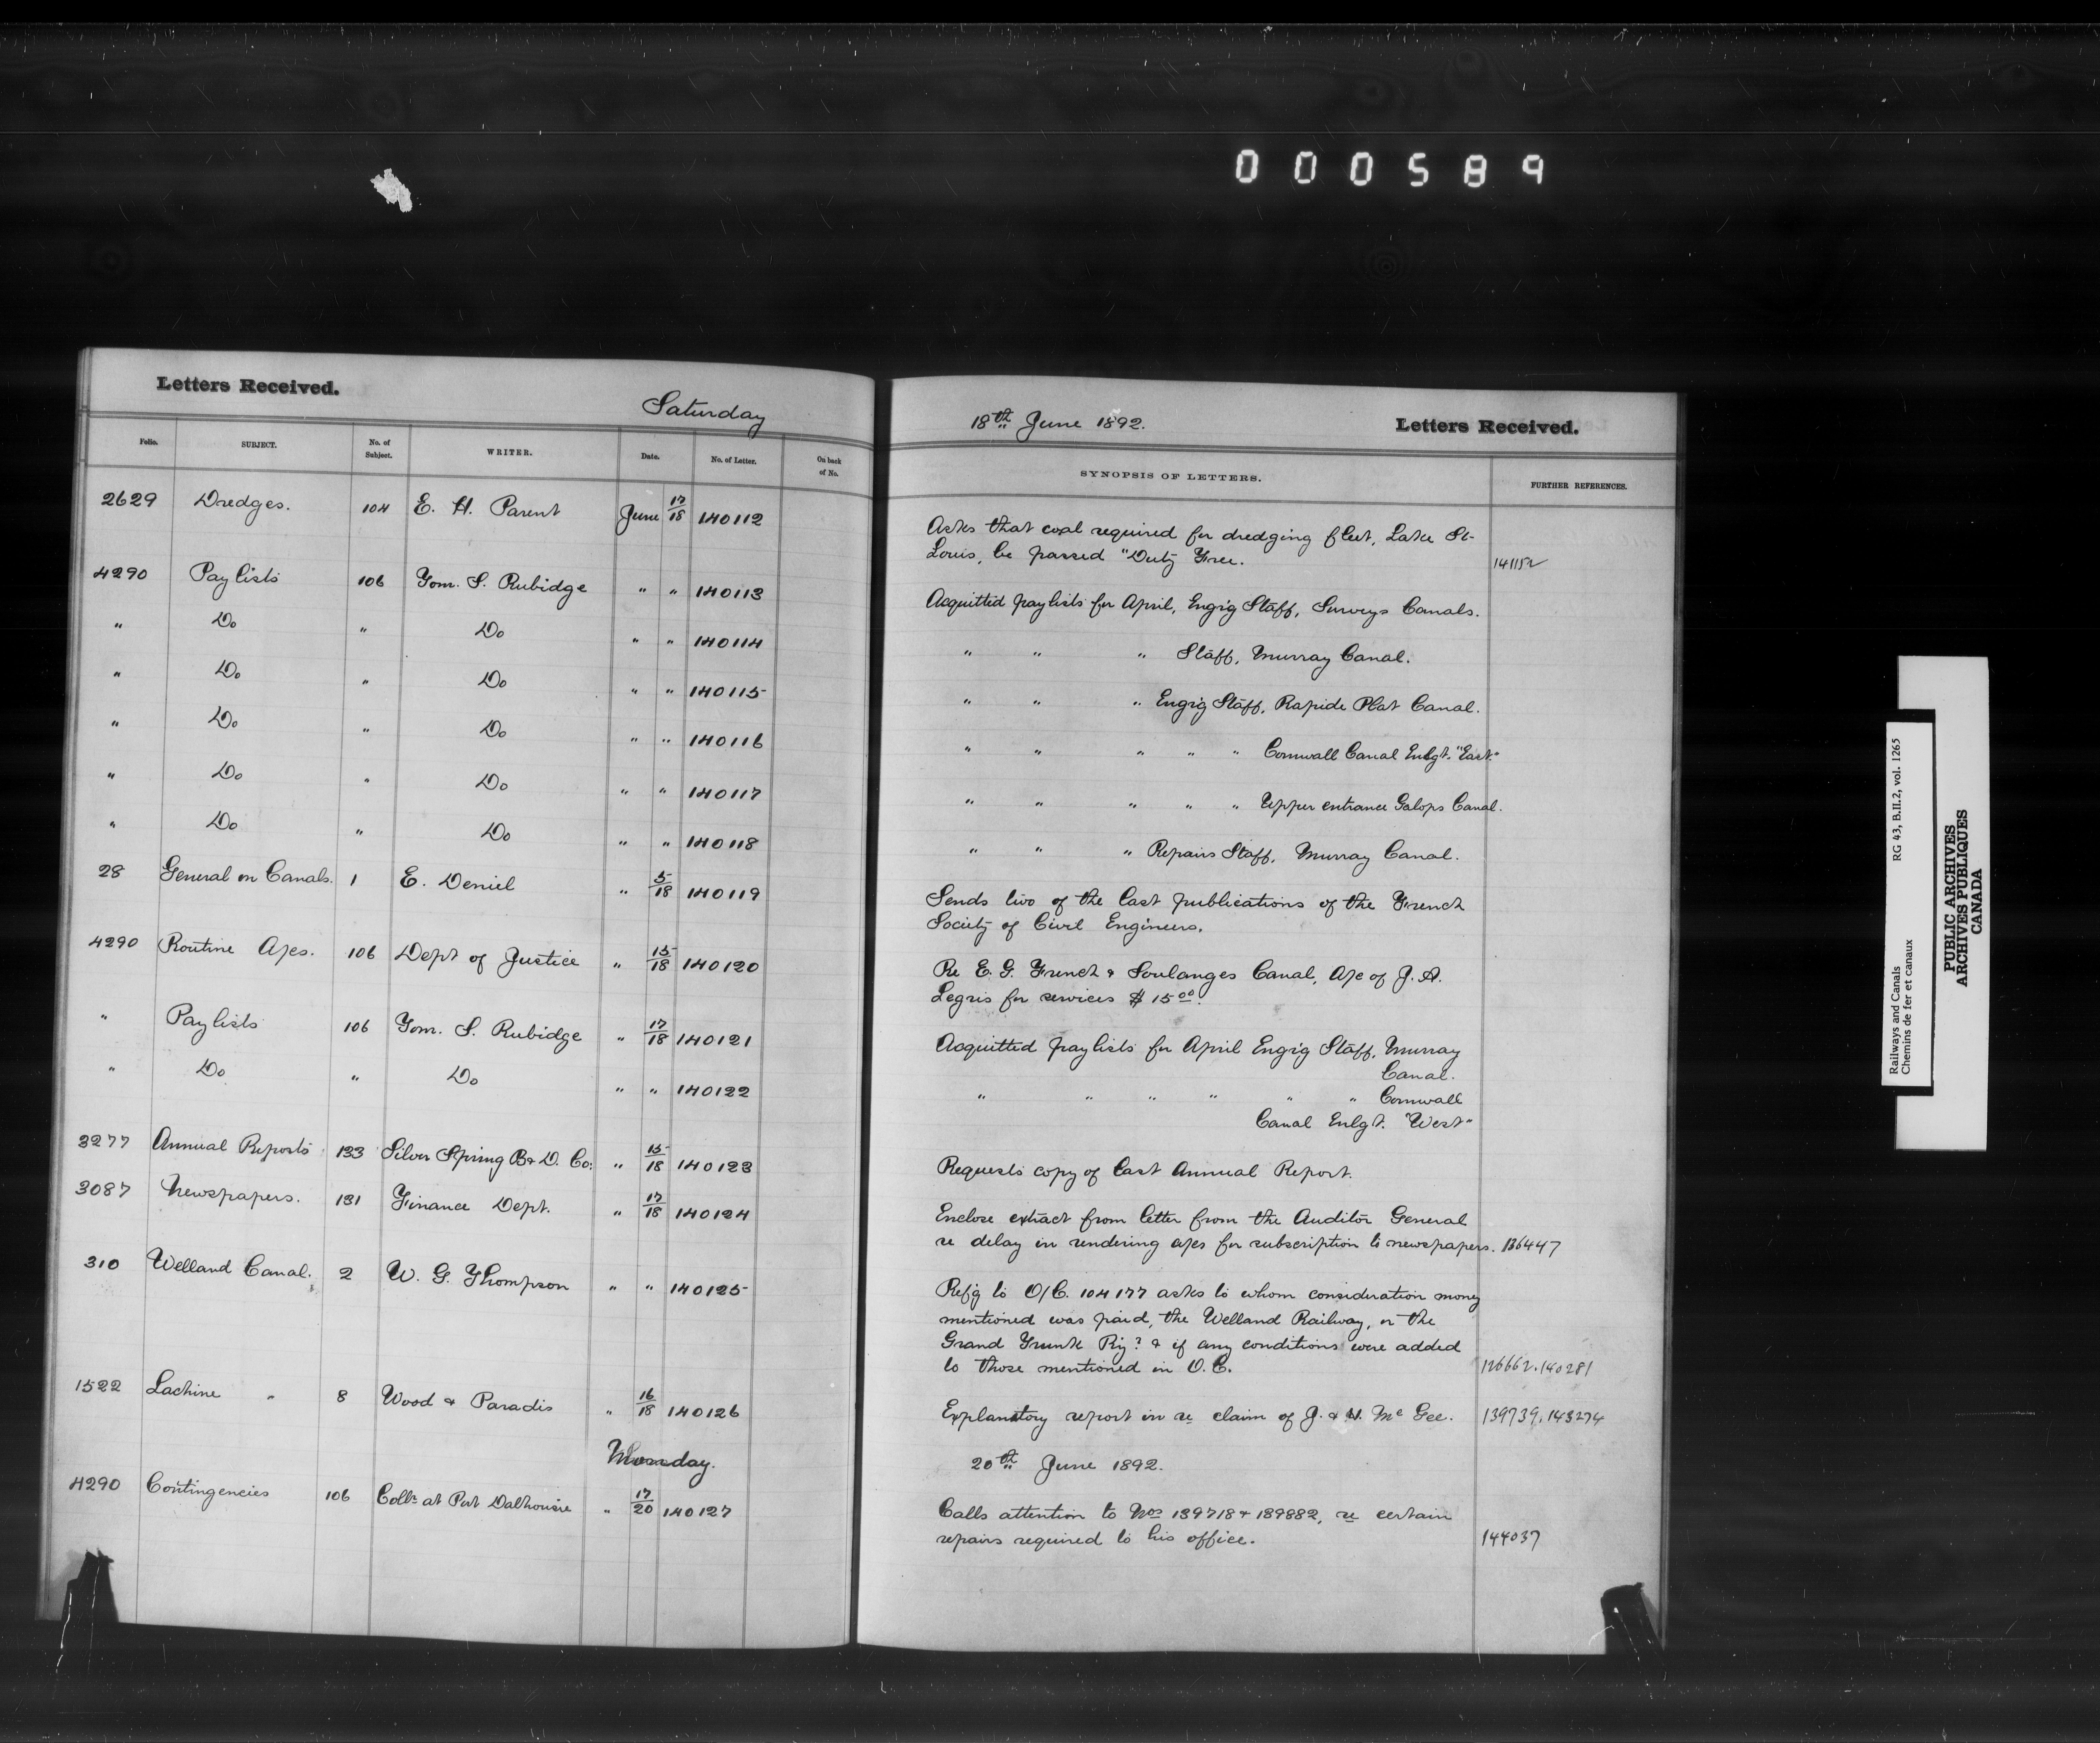 000589
Letters Received.
Saturday
Folio. SUBJECT. No. of Subject. WRITER. Date. No. of Letter. On back of No.
2629 Dredges. 104 E. H. Parent June 17/18 140112
4290 Paylists 106 Tom. S. Rubidge " " 140113
" Do " Do " " 140114
" Do " Do " " 140115
" Do " Do " " 140116
" Do " Do " " 140117
" Do " Do " " 140118
28 General on Canals. 1 E. Deniel " 5/18 140119
4290 Routine A/cs. 106 Dept of Justice " 15/18 140120
" Paylists 106 Tom. S. Rubidge " 17/18 140121
" Do " Do " " 140122
3277 Annual Reports 133 Silver Spring B & D. Co: " 15/18 140123
3087 Newspapers. 131 Finance Dept. " 17/18 140124
310 Welland Canal. 2 W. G. Thompson " " 140125
1522 Lachine " 8 Wood & Paradis " 16/18 140126
Monday.
4290 Contingencies 106 Collr at Port Dalhousie " 17/20 140127
18th June 1892.
Letters Received.
SYNOPSIS OF LETTERS. FURTHER REFERENCES.
Asks that coal required for dredging fleet, Lake St-
Louis, be passed "Duty Free. 141152
Acquitted paylists for April, Engrg Staff, Surveys Canals.
" " " Staff, Murray Canal.
" " " Engrg Staff, Rapide Plat Canal.
" " " " " Cornwall Canal Enlgt. "East."
" " " " " Upper entrance Galops Canal.
" " " Repairs Staff, Murray Canal.
Sends two of the last publications of the French
Society of Civil Engineers.
Re E. G. French & Soulanges Canal, A/c of J. A.
Legris for services $15 00.
Acquitted paylists for April Engrg Staff, Murray
Canal.
" " " " " " Cornwall
Canal Enlgt. "West"
Requests copy of last Annual Report.
Enclose extract from letter from the Auditor General
re delay in rendering a/cs for subscription to newspapers. 136447
Refg to O/C. 104177 asks to whom consideration money
mentioned was paid, the Welland Railway, or the
Grand Trunk Ry? & if any conditions were added
to those mentioned in O.C. 126662.140281
Explanatory report in re claim of J. & H. Mc Gee. 139739.143274
20th June 1892.
Calls attention to Nos 139718 & 139882, re certain
repairs required to his office. 144037
Railways and Canals RG 43, B.II.2, vol. 1265
Chemins de fer et canaux
PUBLIC ARCHIVES
ARCHIVES PUBLIQUES
CANADA